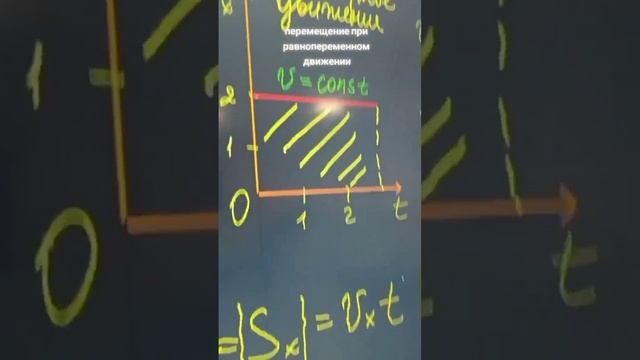 движении
перемещение при
равнопеременном
движении
v = const
2
1
0
1
2
t
=|Sₓ| = vₓt